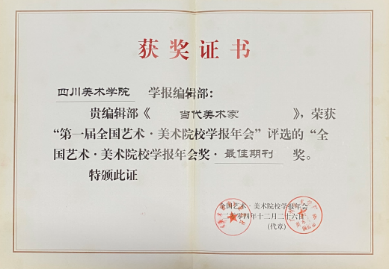 获奖证书
四川美术学院 学报编辑部：
贵编辑部《 当代美术家 》，荣获
“第一届全国艺术·美术院校学报年会”评选的“全
国艺术·美术院校学报年会奖·最佳期刊 奖。
特颁此证
全国艺术·美术院校学报年会
年十二月二十六日
(代章)